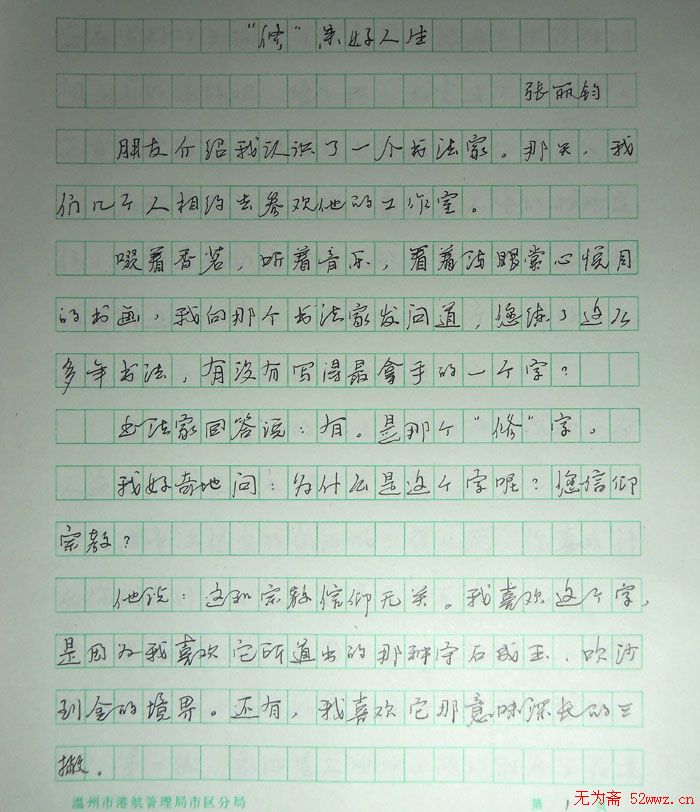 “修”来好人生
张丽钧
朋友介绍我认识了一个书法家。那天，我
们几个人相约去参观他的工作室。
啜着香茗，听着音乐，看着满眼赏心悦目
的书画，我向那个书法家发问道，您练了这么
多年书法，有没有写得最拿手的一个字？
书法家回答说：有。是那个“修”字。
我好奇地问：为什么是这个字呢？您信仰
宗教？
他说：这和宗教信仰无关。我喜欢这个字，
是因为我喜欢它所道出的那种守石成玉、吹沙
到金的境界。还有，我喜欢它那意味深长的三
撇。
温州市港航管理局市区分局 第 1
无为斋 52wwz.cn